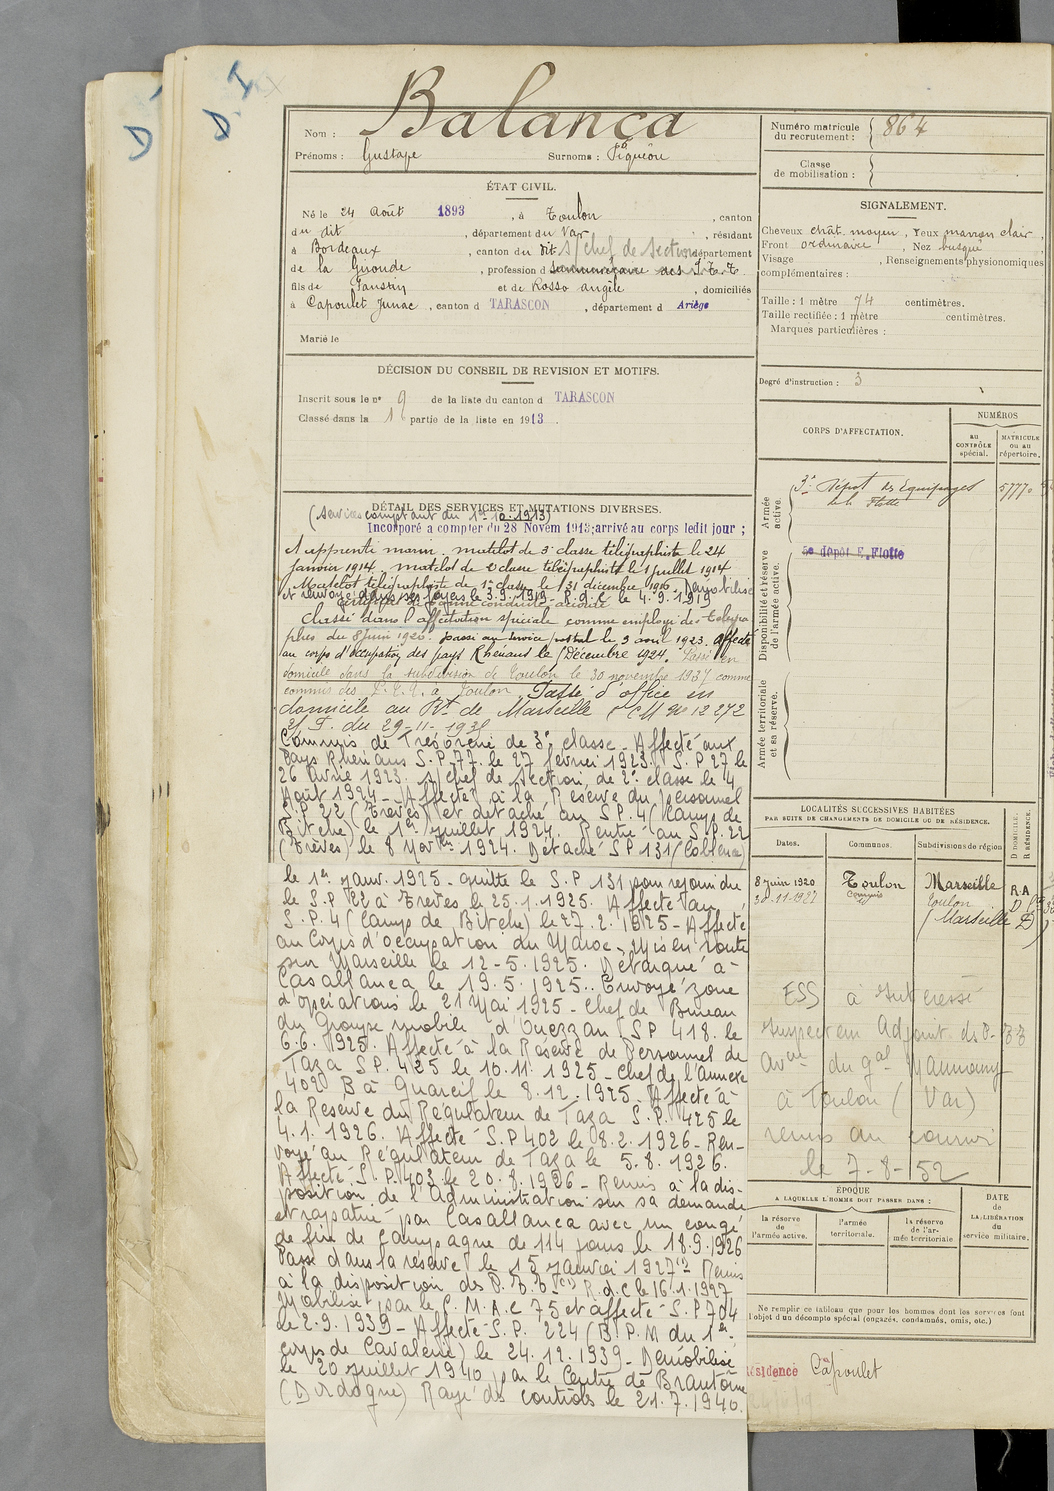 D
D. I
Nom : Balança
Prénoms : Gustave Surnoms : Piquéou
Numéro matricule du recrutement : 864
Classe de mobilisation :
ÉTAT CIVIL.
Né le 24 Août 1893, à Toulon, canton
du dit, département du Var, résidant
à Bordeaux, canton du dit s/chef de section département
de la Gironde, profession d surnuméraire des P.T.T.
fils de Faustin et de Rosso Angèle, domiciliés
à Capoulet Junac, canton d TARASCON, département d Ariège
Marié le
SIGNALEMENT.
Cheveux chât. moyen, Yeux marron clair,
Front ordinaire, Nez busqué
Visage , Renseignements physionomiques
complémentaires :
Taille : 1 mètre 74 centimètres.
Taille rectifiée : 1 mètre centimètres.
Marques particulières :
Degré d'instruction : 3
DÉCISION DU CONSEIL DE REVISION ET MOTIFS.
Inscrit sous le n° 9 de la liste du canton d TARASCON
Classé dans la 1e partie de la liste en 1913.
CORPS D'AFFECTATION.
NUMÉROS
au CONTRÔLE spécial.
MATRICULE ou au répertoire.
Armée active.
3e Dépôt des Equipages de la Flotte
5777
5e dépôt E. Flotte
Disponibilité et réserve de l'armée active.
Armée territoriale et sa réserve.
DÉTAIL DES SERVICES ET MUTATIONS DIVERSES.
(Services comptant du 1er 10.1913)
Incorporé a compter du 28 Novem 1913; arrivé au corps ledit jour ;
apprenti marin. matelot de 3e classe télégraphiste le 24
janvier 1914. matelot de 2e classe télégraphiste le 1 juillet 1914
Matelot télégraphiste de 1e classe le 31 décembre 1916. Démobilisé
et renvoyé dans ses foyers le 3.9.1919. R.d.C. le 4.9.1919
certificat de bonne conduite accordé
Classé dans l'affectation spéciale comme employé des Télégra
phes du 8 juin 1920. passé au service postal le 3 avril 1923. Affecté
au corps d'occupation des pays Rhénans le 1 Décembre 1924. Passé en
domicile dans la subdivision de Toulon le 30 novembre 1937 comme
commis des P.T.T. à Toulon. Passé d'office en
domicile au Rt de Marseille (CM N° 12272
du 29-11-1938
Commis de Trésorerie de 3e classe. Affecté aux
Pays Rhénans S.P.77. le 27 février 1923. S.P 27 le
26 Avril 1923. s/chef de section de 2e classe le 4
Août 1924. Affecté à la Réserve du personnel
S.P 22 (Trèves) et détaché au S.P. 4 (Camp de
Bitche) le 1er juillet 1924. Rentré au S.P. 22
(Trèves) le 8 Novbre 1924. Détaché S.P 131 (Coblence)
le 1er janv. 1925. quitte le S.P 131 pour rejoindre
le S.P 22 à Trèves le 25.1.1925. Affecté au
S.P. 4 (Camp de Bitche) le 27.2.1925 - Affecté
au Corps d'occupation du Maroc. Mis en route
sur Marseille le 12-5-1925. Débarqué à
Casablanca le 19.5.1925. Envoyé zone
d'opérations le 21 Mai 1925 - Chef de Bureau
du Groupe mobile d'Ouezzan S.P 418. le
6.6.1925. Affecté à la Réserve de Personnel de
Taza S.P. 425 le 10.11.1925 - Chef de l'Annexe
402 B à Guercif le 8.12.1925. Affecté à
la Réserve du Régulateur de Taza S.P. 425 le
4.1.1926. Affecté S.P 402 le 8.2.1926 - Ren-
voyé au Régulateur de Taza le 5.8.1926.
Affecté S.P. 403 le 20.8.1926 - Remis à la dis-
position de l'Administration sur sa demande
et rapatrié par Casablanca avec un congé
de fin de campagne de 114 jours le 18.9.1926
Passé dans la réserve le 15 janvier 1927. Remis
à la disposition des P.T.T. R.d.C le 16.1.1927
Mobilisé par le C.M.A.C 75 et affecté S.P 704
le 2.9.1939 - Affecté S.P. 224 (B P.M du 1er
corps de Cavalerie) le 24.12.1939 - Démobilisé
le 20 juillet 1940 par le Centre de Brantôme
(Dordogne) Rayé des contrôles le 21.7.1940.
LOCALITÉS SUCCESSIVES HABITÉES
PAR SUITE DE CHANGEMENTS DE DOMICILE OU DE RÉSIDENCE.
Dates. Communes. Subdivisions de région D DOMICILE. R RÉSIDENCE.
8 Juin 1920 Toulon Marseille R.A
30.11.1937 Commis Toulon D
(Marseille D)
ESS à intéressé
Inspecteur Adjoint des P.
à Toulon (Var)
remis au
le 7-8-52
ÉPOQUE
A LAQUELLE L'HOMME DOIT PASSER DANS :
la réserve de l'armée active.
l'armée territoriale.
la réserve de l'armée territoriale
DATE de LA LIBÉRATION du service militaire.
Ne remplir ce tableau que pour les hommes dont les services font
l'objet d'un décompte spécial (engagés, condamnés, omis, etc.)
Résidence Capoulet